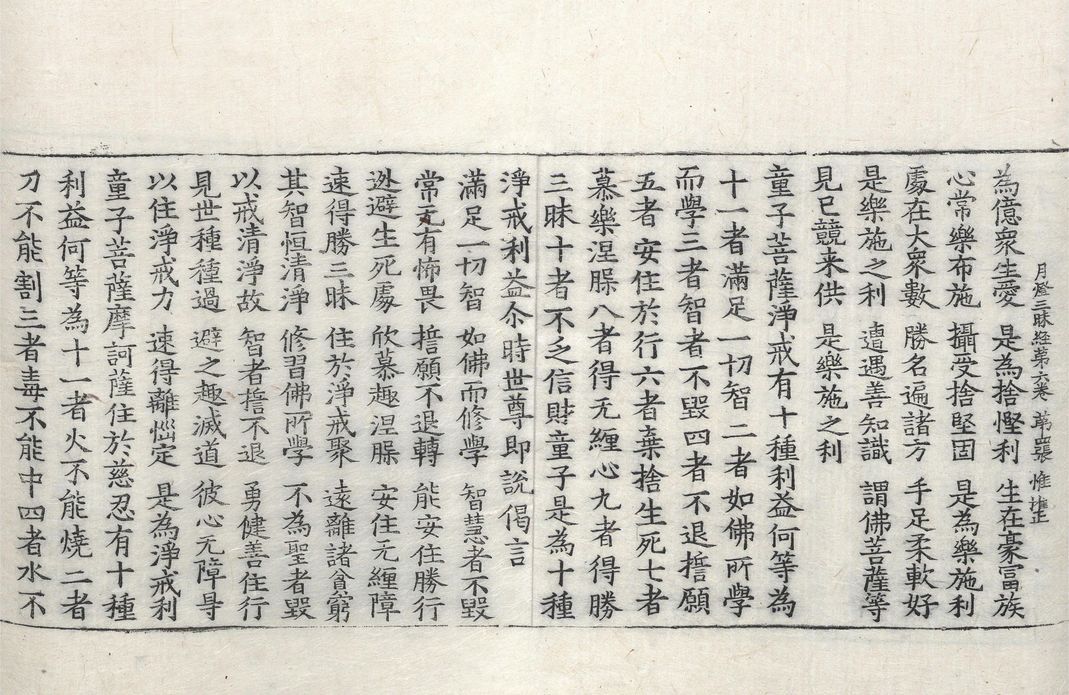 為億衆生愛　是為捨慳利　生在豪冨族
月燈三昧経第六卷　第　張　惟
心常樂布施　攝受捨堅固　是為樂施利
處在大衆數　勝名遍諸方　手足柔軟好
是樂施之利　遭遇善知識　謂佛菩薩等
見已競来供　是樂施之利
童子菩薩淨戒有十種利益何等為
十一者滿足一切智二者如佛所學
而學三者智者不毀四者不退擔願
五者安住於行六者棄捨生死七者
慕樂涅槃八者得无纏心九者得勝
三昧十者不乏信財童子是為十種
淨戒利益尒時世尊即說偈言
滿足一切智　如佛而修學　智慧者不毀
常无有怖畏　擔願不退轉　能安住勝行
迯避生死處　欣慕趣涅槃　安住无纏障
速得勝三昧　住於淨戒聚　遠離諸貧窮
其智恒清淨　修習佛所學　不為聖者毀
以戒清淨故　智者擔不退　勇健善住行
見世種種過　避之趣滅道　彼心无障㝵
以住淨戒力　速得離惱定　是為淨戒利
童子菩薩摩訶薩住於慈忍有十種
利益何等為十一者火不能燒二者
刀不能割三者毒不能中四者水不